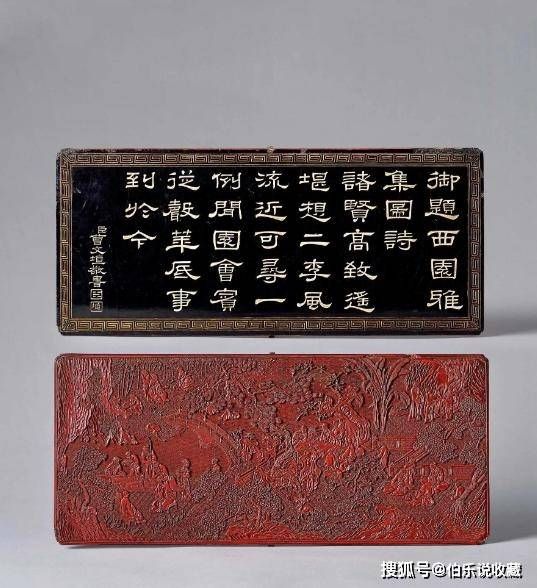 御題西園雅
集圖詩
諸賢高致遙
堪想二李風
流近可尋一
例聞園會賓
從華底事
到於今
臣曹文埴敬書
搜狐号@伯乐说收藏